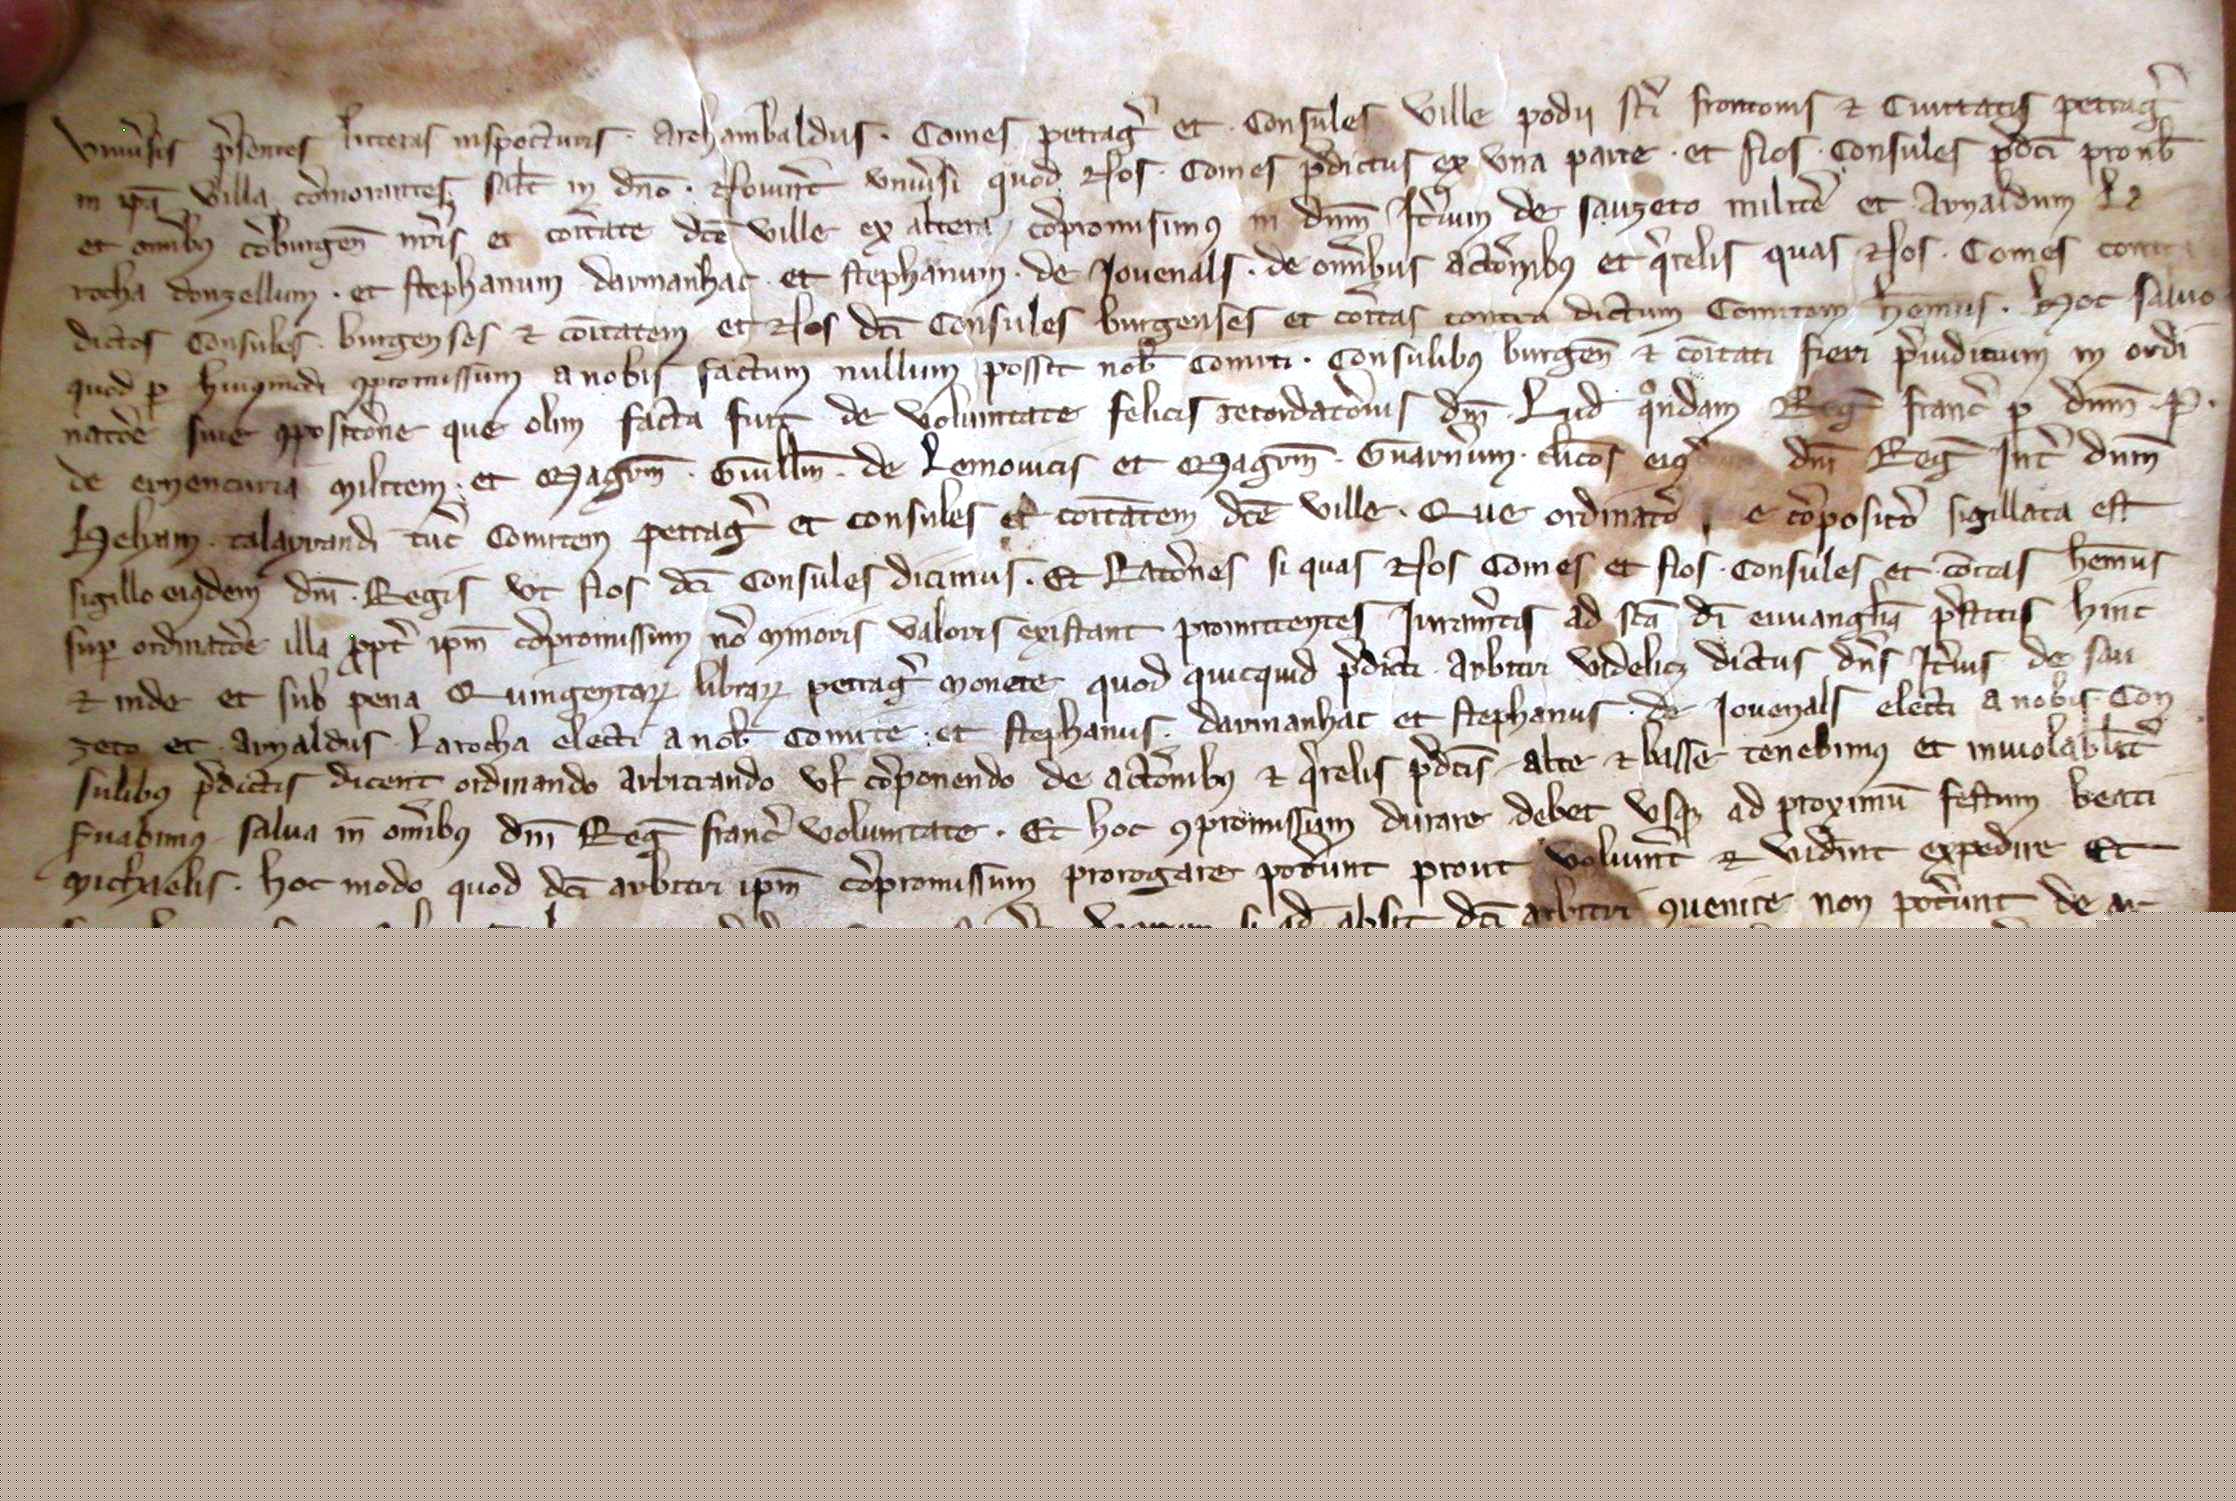 Vniūsis p̄sentes litteras inspecturis · Archambaldus · Comes petrag̃ et · Consules ville podii sc̄i frontonis ⁊ Ciuitatis petrag̃
in ip̄a villa cōmorantes saĺt in dn̄o · Nouint̄ vniūsi quod Nos · Comes p̄dictus ex vna parte · et Nos · Consules p̄dc̄i pro nob̄
et omībȝ cōburgen̄ nr̄is et coītate dc̄e ville ex altera cōpromisimꝰ in dn̄m Itīum de sauzeto milite᷒ et Arnaldum La
rocha donzellum · et stephanum darmanhac · et stephanum · de Iouenals · de omībus actōibȝ et q̄relis quas Nos · Comes contra
dictos Consules · burgenses ⁊ coītatem et Nos dc̄i Consules burgenses et coītas contra dictum Comitem hēmus · Hoc saluo
quod ꝑ huiꝰmodi ꝯpromissum a nobis factum nullum possit nob̄ Comiti · Consulibus burgen̄ ⁊ coītati fieri p̄iudicium in ordi
natōe siue ꝯpositōne que olim facta fuit de voluntate felicis recordatōnis dn̄i · Lud q̊ndam Reg̃ franc̄ ꝑ dn̄m · P ·
de militem · et Magrm̄ · Guillm̄ · de Lemouicis et Magrm̄ · Guarn̄ium · clīcos eiꝰ dn̄i Reg̃ Int̄ dn̄m
Heliam · talayrandi tūc Comitem petrag̃ et consules et coītatem dc̄e ville · Que ordinatō e cōpositō sigillata est
sigillo eiꝰdem dn̄i · Regis vt Nos dc̄i Consules dicimus · Et Ratōnes si quas Nos Comes et Nos · Consules et coītas hēmus
suꝑ ordinatōe illa ꝓpt̄ ip̄m cōpromissum nō minoris valoris existant promittentes Iuram̄tis ad sc̄a dī euuanglīa p̄stitis hinc
⁊ inde et sub pena Quingentaꝝ libraꝝ petrag̃ monete quod quicquid p̄dicti · arbitri videlicꝫ dictus dn̄s Itīus de sau
zeto et · Arnaldus · Larocha electi a nob̄ Comite · et stephanus · darmanhac et stephanus · de Iouenals electi a nobis Con
sulibus p̄dictis dicent ordinando arbitrando vl̄ cōponendo de actōibȝ ⁊ q̄relis p̄dc̄is alte ⁊ basse tenebimꝰ et inuiolabilīt̄
s̄uabimus · salua in omībȝ dn̄i Reg̃ franc̄ voluntate · Et hoc ꝯpromissum durare debet vsqꝫ ad proximū festum beati
Michaelis · hoc modo quod dc̄i arbitri ip̄m cōpromissum prorogare pot̄unt prout voluint̄ ⁊ vid̄int expedire Et
si qd̄ absit dc̄i arbitri ꝯuenire non pot̄unt de